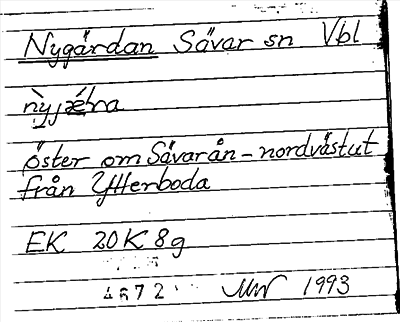 Nygärdan Sävar sn Vbl
nỳjæ̀ɫna
öster om Sävarån – nordvästut
från Ytterboda
EK 20K 8g
4672 MW 1993